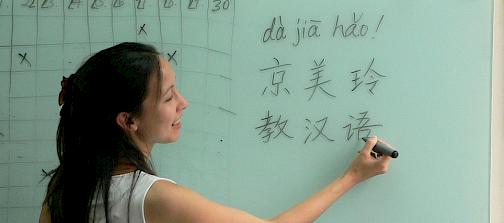 23 24 25 26 27 28 29 30
dà jiā hǎo!
京美玲
教汉语